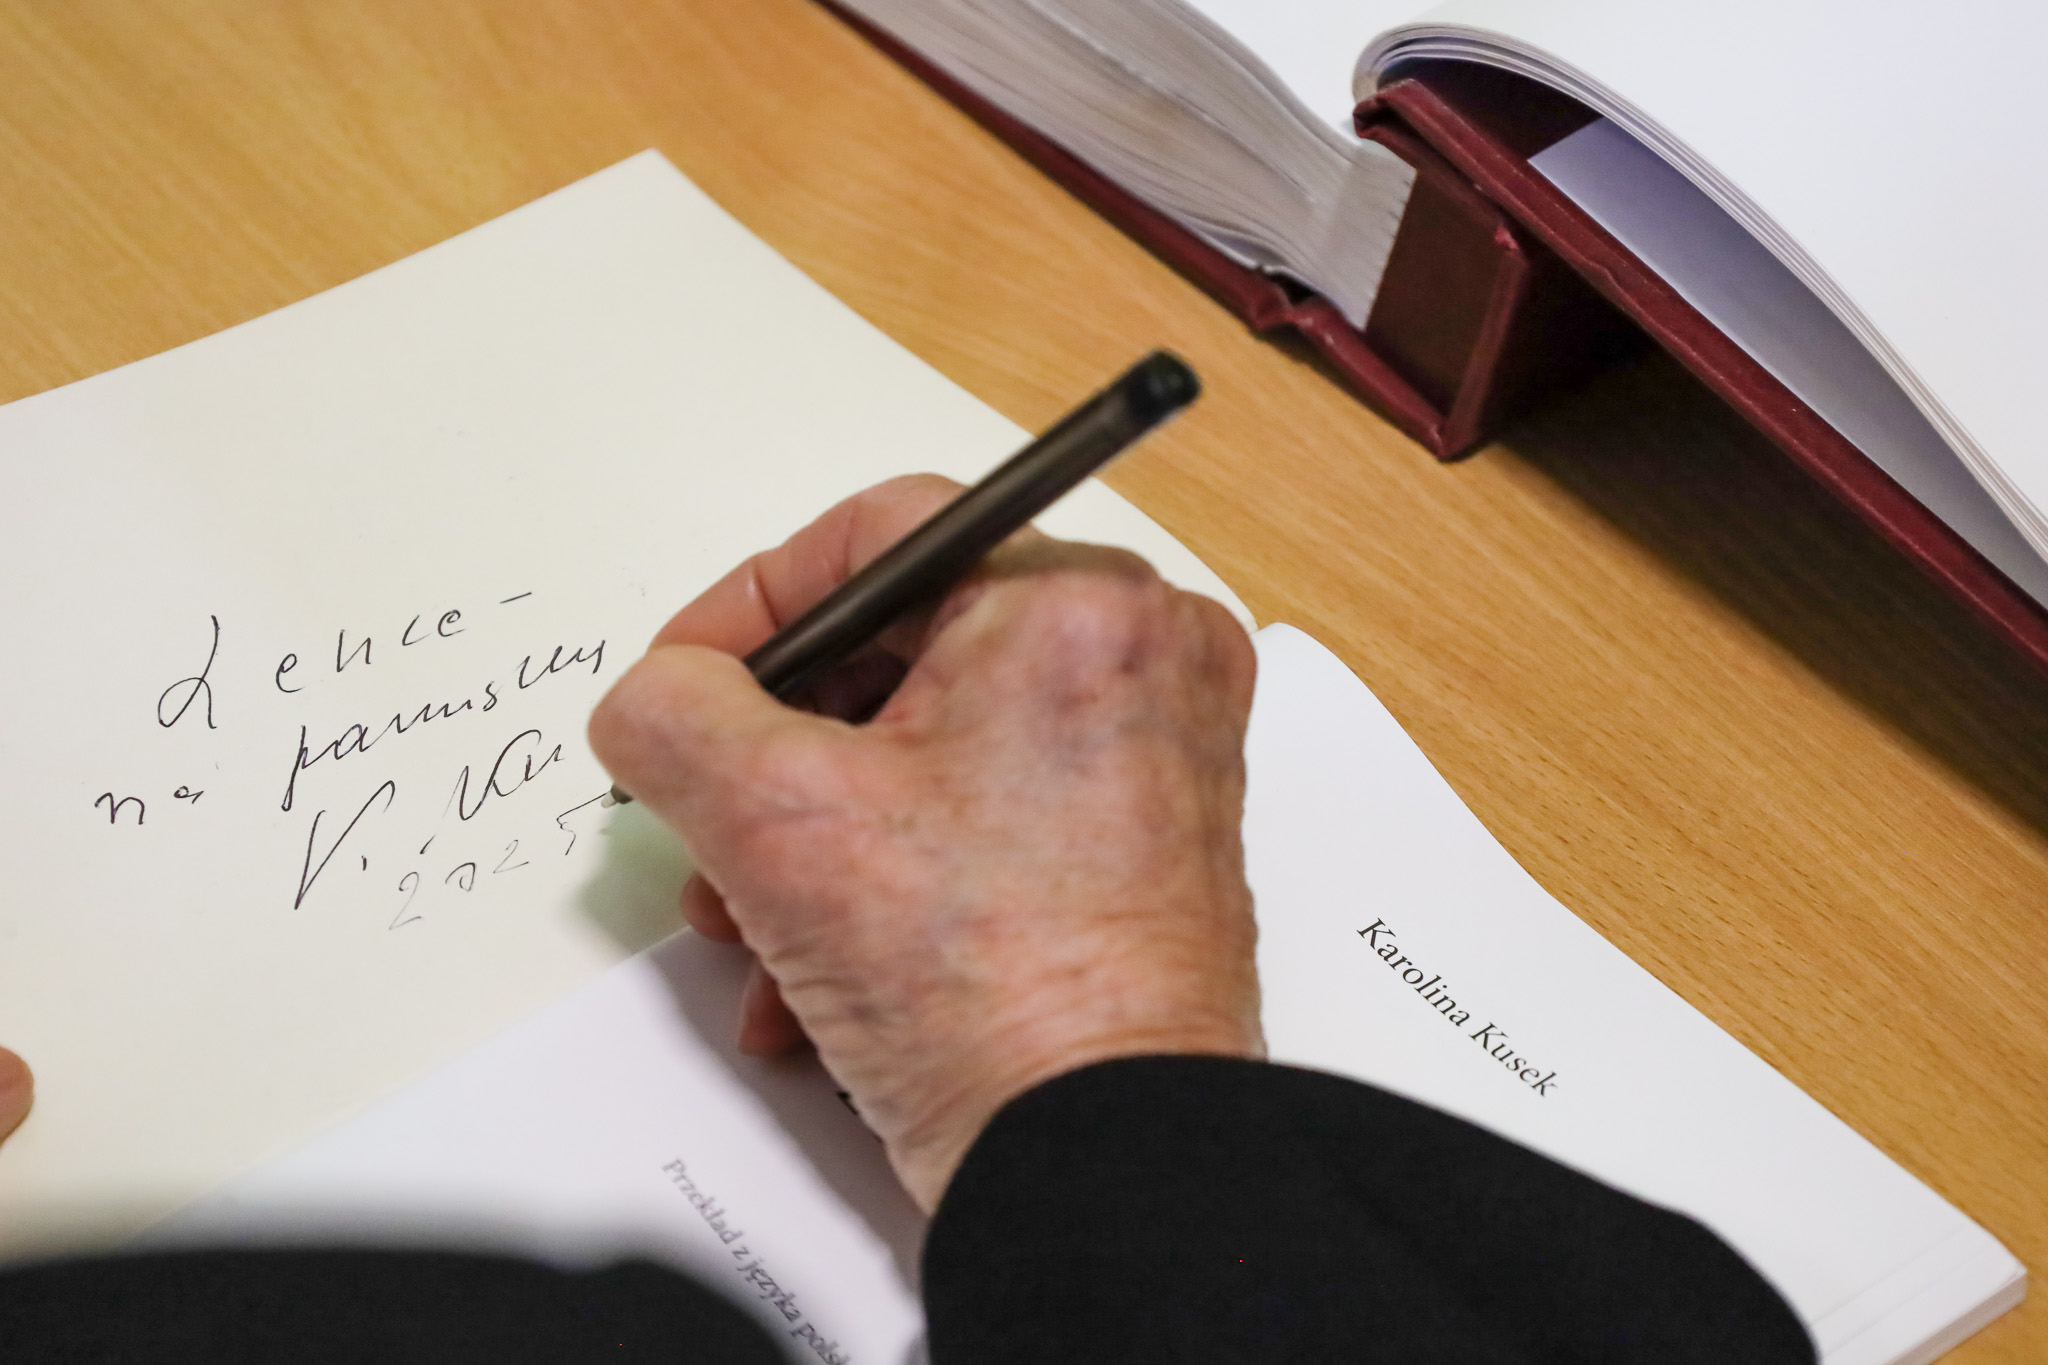 Lence -
na pamiątkę
K. Kus
2025
Karolina Kusek
Przekład z języka polsk